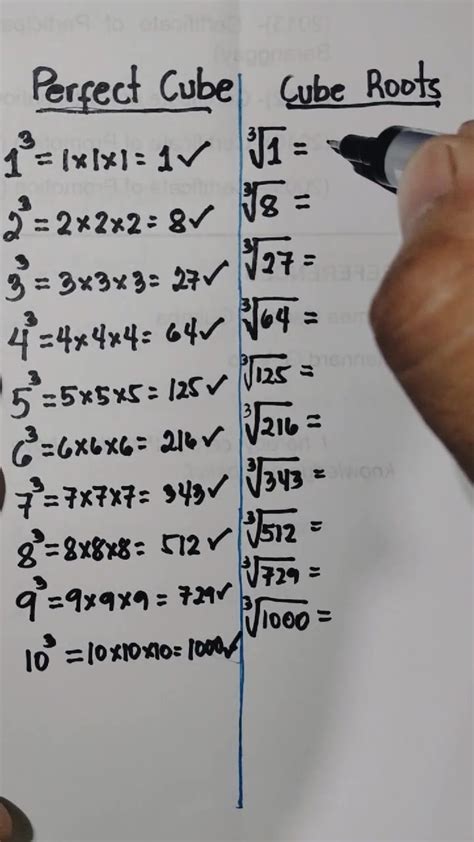 Perfect Cube
1³ = 1×1×1 = 1 ✓
2³ = 2×2×2 = 8 ✓
3³ = 3×3×3 = 27 ✓
4³ = 4×4×4 = 64 ✓
5³ = 5×5×5 = 125 ✓
6³ = 6×6×6 = 216 ✓
7³ = 7×7×7 = 343 ✓
8³ = 8×8×8 = 512 ✓
9³ = 9×9×9 = 729 ✓
10³ = 10×10×10 = 1000 ✓
Cube Roots
∛1 =
∛8 =
∛27 =
∛64 =
∛125 =
∛216 =
∛343 =
∛512 =
∛729 =
∛1000 =